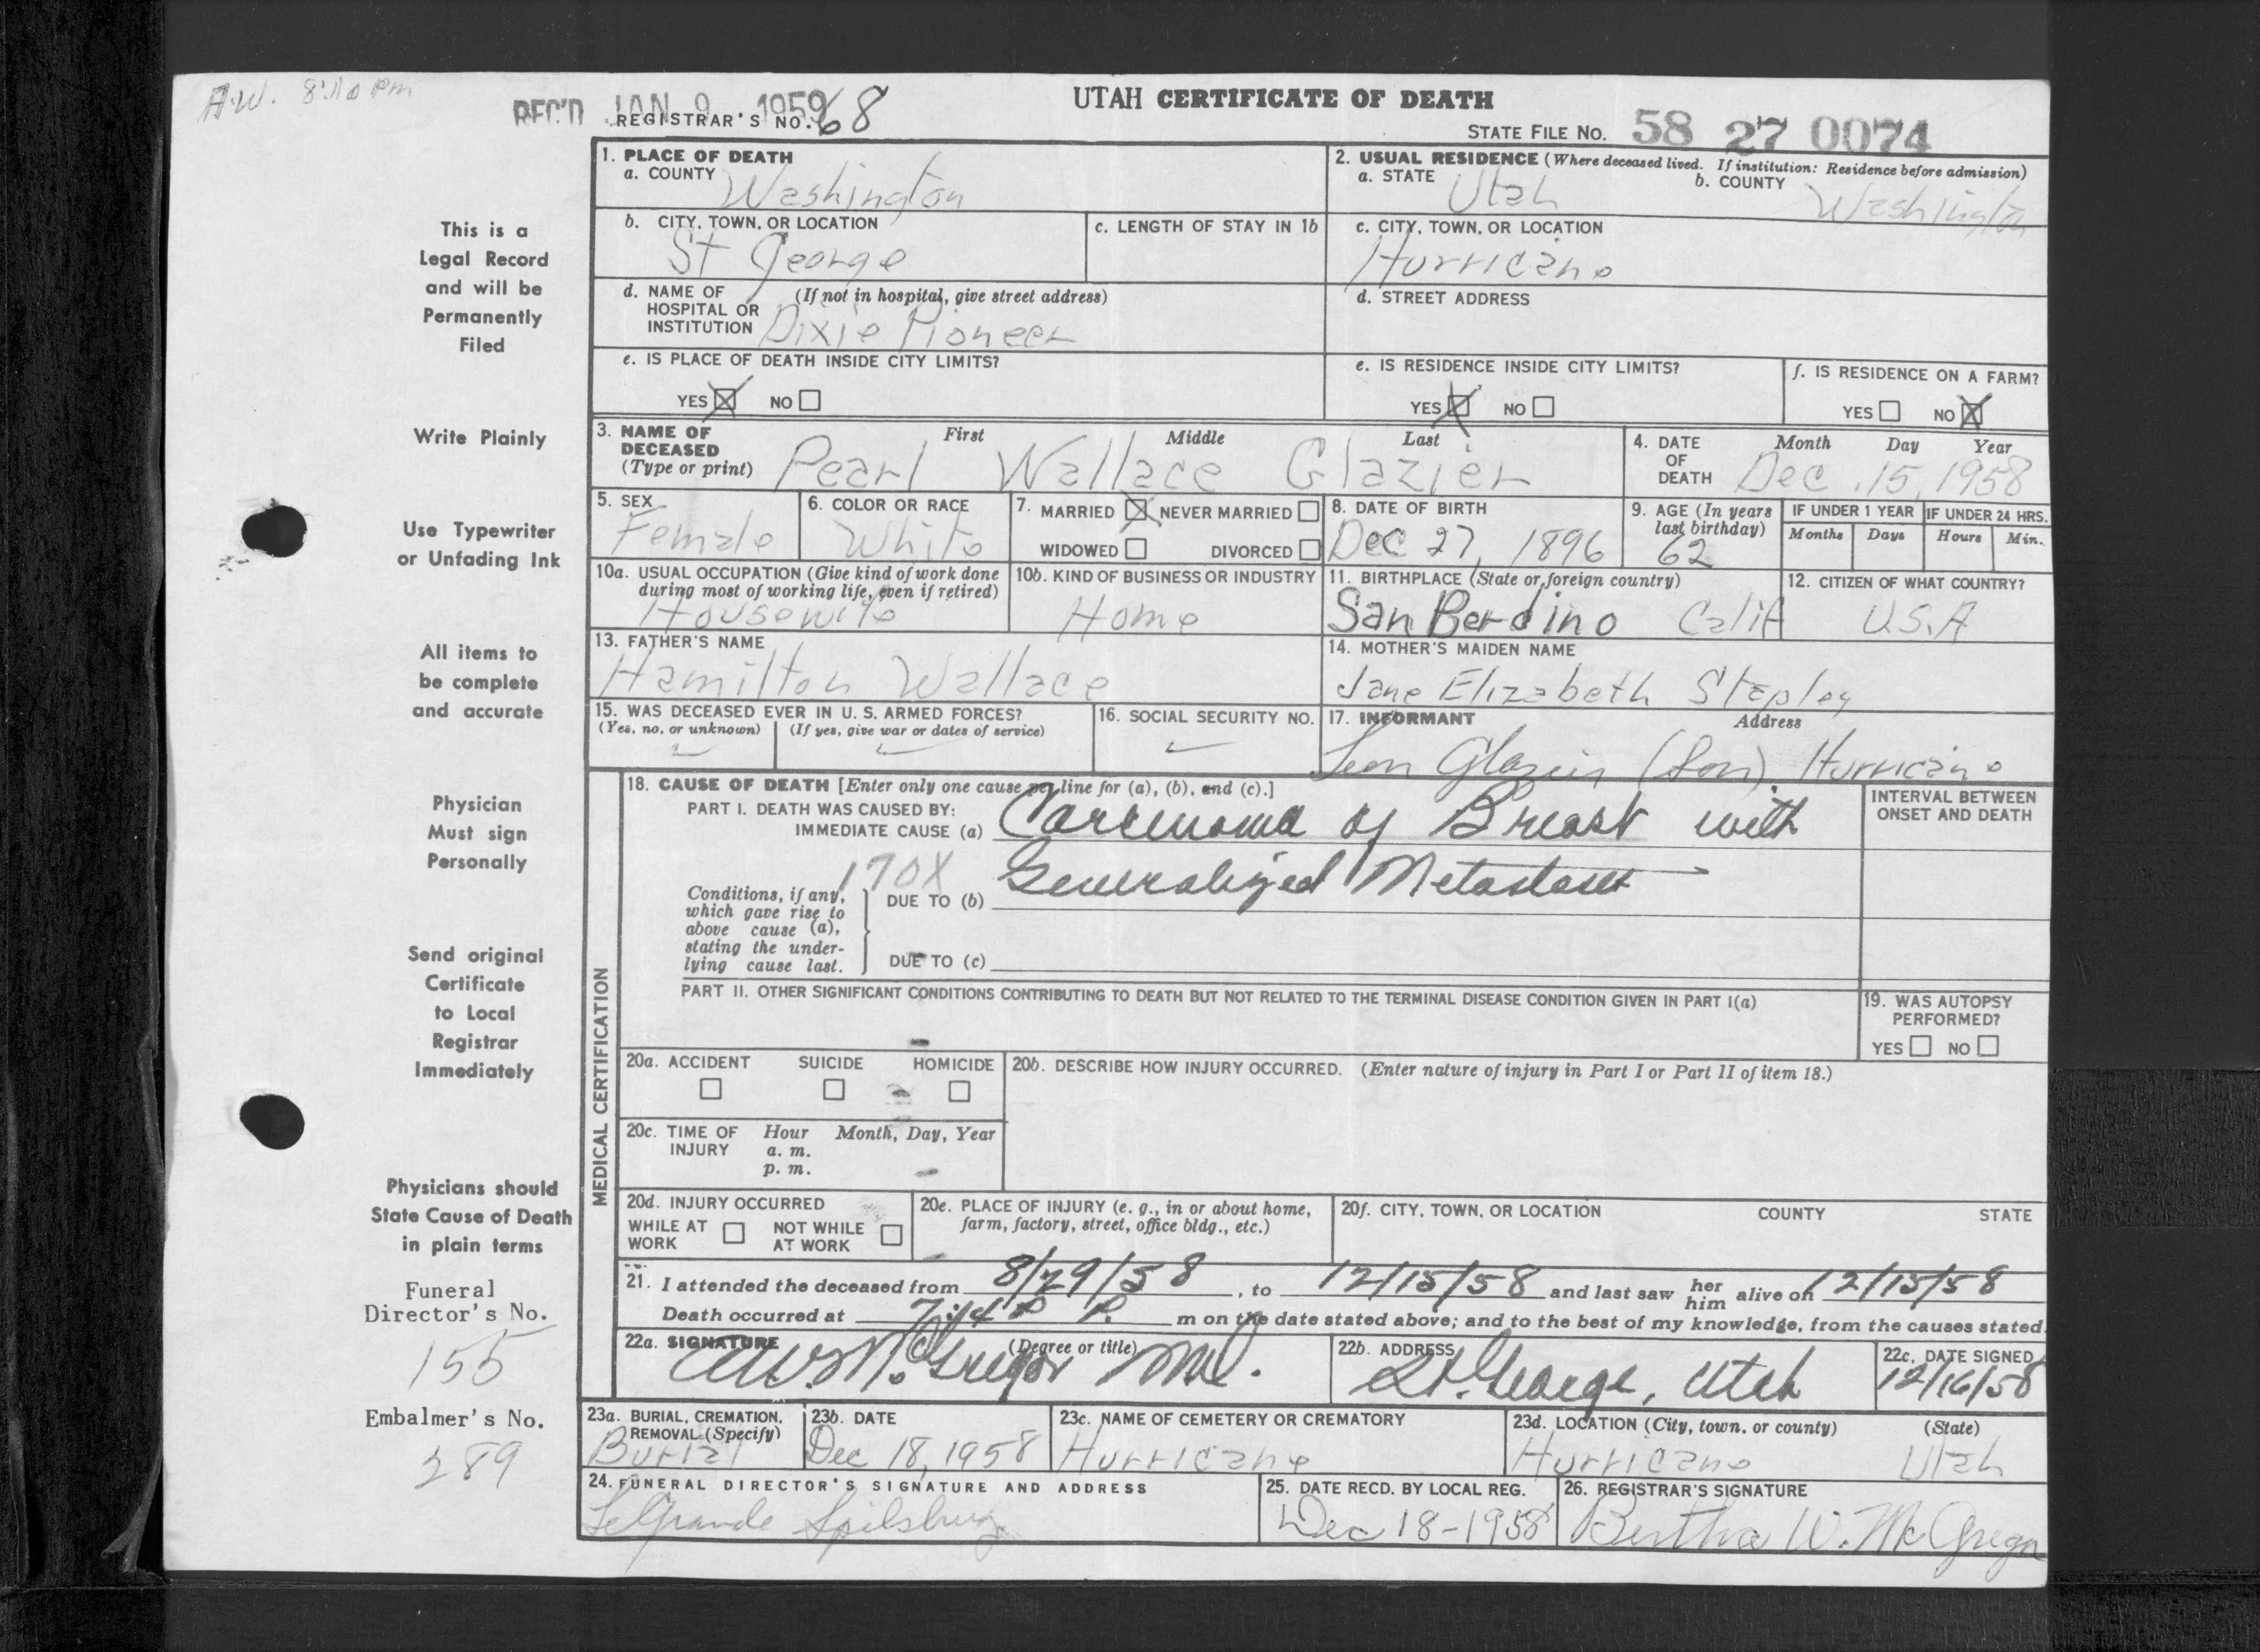 A.W. 8:10 PM
REC'D JAN 9 1959
REGISTRAR'S NO. 68
UTAH CERTIFICATE OF DEATH
STATE FILE NO. 58 27 0074
This is a
Legal Record
and will be
Permanently
Filed
Write Plainly
Use Typewriter
or Unfading Ink
All items to
be complete
and accurate
Physician
Must sign
Personally
Send original
Certificate
to Local
Registrar
Immediately
Physicians should
State Cause of Death
in plain terms
Funeral
Director's No.
155
Embalmer's No.
289
1. PLACE OF DEATH
a. COUNTY Washington
2. USUAL RESIDENCE (Where deceased lived. If institution: Residence before admission)
a. STATE Utah b. COUNTY Washington
b. CITY, TOWN, OR LOCATION
St George
c. LENGTH OF STAY IN 1b
c. CITY, TOWN, OR LOCATION
Hurricane
d. NAME OF (If not in hospital, give street address)
HOSPITAL OR
INSTITUTION Dixie Pioneer
d. STREET ADDRESS
e. IS PLACE OF DEATH INSIDE CITY LIMITS?
YES X NO
e. IS RESIDENCE INSIDE CITY LIMITS?
YES X NO
f. IS RESIDENCE ON A FARM?
YES NO X
3. NAME OF DECEASED (Type or print) First Middle Last
Pearl Wallace Glazier
4. DATE OF DEATH Month Day Year
Dec. 15, 1958
5. SEX
Female
6. COLOR OR RACE
White
7. MARRIED X NEVER MARRIED
WIDOWED DIVORCED
8. DATE OF BIRTH
Dec 27, 1896
9. AGE (In years last birthday)
62
IF UNDER 1 YEAR
Months Days
IF UNDER 24 HRS.
Hours Min.
10a. USUAL OCCUPATION (Give kind of work done
during most of working life, even if retired)
Housewife
10b. KIND OF BUSINESS OR INDUSTRY
Home
11. BIRTHPLACE (State or foreign country)
San Berdino Calif
12. CITIZEN OF WHAT COUNTRY?
U.S.A
13. FATHER'S NAME
Hamilton Wallace
14. MOTHER'S MAIDEN NAME
Jane Elizabeth Stapley
15. WAS DECEASED EVER IN U. S. ARMED FORCES?
(Yes, no, or unknown) (If yes, give war or dates of service)
16. SOCIAL SECURITY NO.
17. INFORMANT Address
Leon Glazier (Son) Hurricane
MEDICAL CERTIFICATION
18. CAUSE OF DEATH [Enter only one cause per line for (a), (b), and (c).]
PART I. DEATH WAS CAUSED BY:
IMMEDIATE CAUSE (a) Carcinoma of Breast with
170X
Generalized Metastases
Conditions, if any,
which gave rise to
above cause (a),
stating the under-
lying cause last.
DUE TO (b)
DUE TO (c)
INTERVAL BETWEEN
ONSET AND DEATH
PART II. OTHER SIGNIFICANT CONDITIONS CONTRIBUTING TO DEATH BUT NOT RELATED TO THE TERMINAL DISEASE CONDITION GIVEN IN PART I(a)
19. WAS AUTOPSY
PERFORMED?
YES NO
20a. ACCIDENT SUICIDE HOMICIDE
20b. DESCRIBE HOW INJURY OCCURRED. (Enter nature of injury in Part I or Part II of item 18.)
20c. TIME OF INJURY Hour Month, Day, Year
a. m.
p. m.
20d. INJURY OCCURRED
WHILE AT WORK NOT WHILE AT WORK
20e. PLACE OF INJURY (e. g., in or about home,
farm, factory, street, office bldg., etc.)
20f. CITY, TOWN, OR LOCATION COUNTY STATE
21. I attended the deceased from 8/29/58, to 12/15/58 and last saw her him alive on 12/15/58
Death occurred at P. m on the date stated above; and to the best of my knowledge, from the causes stated.
22a. SIGNATURE (Degree or title)
AW McGregor MD.
22b. ADDRESS
St. George, Utah
22c. DATE SIGNED
12/16/58
23a. BURIAL, CREMATION,
REMOVAL (Specify)
Burial
23b. DATE
Dec 18, 1958
23c. NAME OF CEMETERY OR CREMATORY
Hurricane
23d. LOCATION (City, town, or county) (State)
Hurricane Utah
24. FUNERAL DIRECTOR'S SIGNATURE AND ADDRESS
LeGrande Spilsbury
25. DATE RECD. BY LOCAL REG.
Dec 18-1958
26. REGISTRAR'S SIGNATURE
Bertha W. McGregor